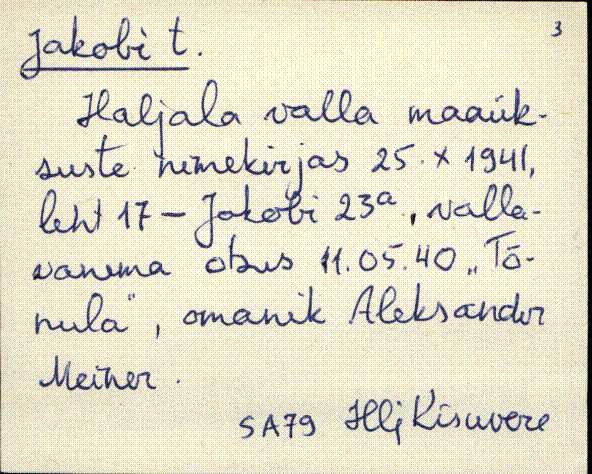 3
Jakobi t.
Haljala valla maaük-
suste nimekirjas 25. X 1941,
leht 17 – Jakobi 23a, valla-
vanema otsus 11.05.40 „Tõ-
nula", omanik Aleksander
Meiner.
SA79 Hlj Kisuvere